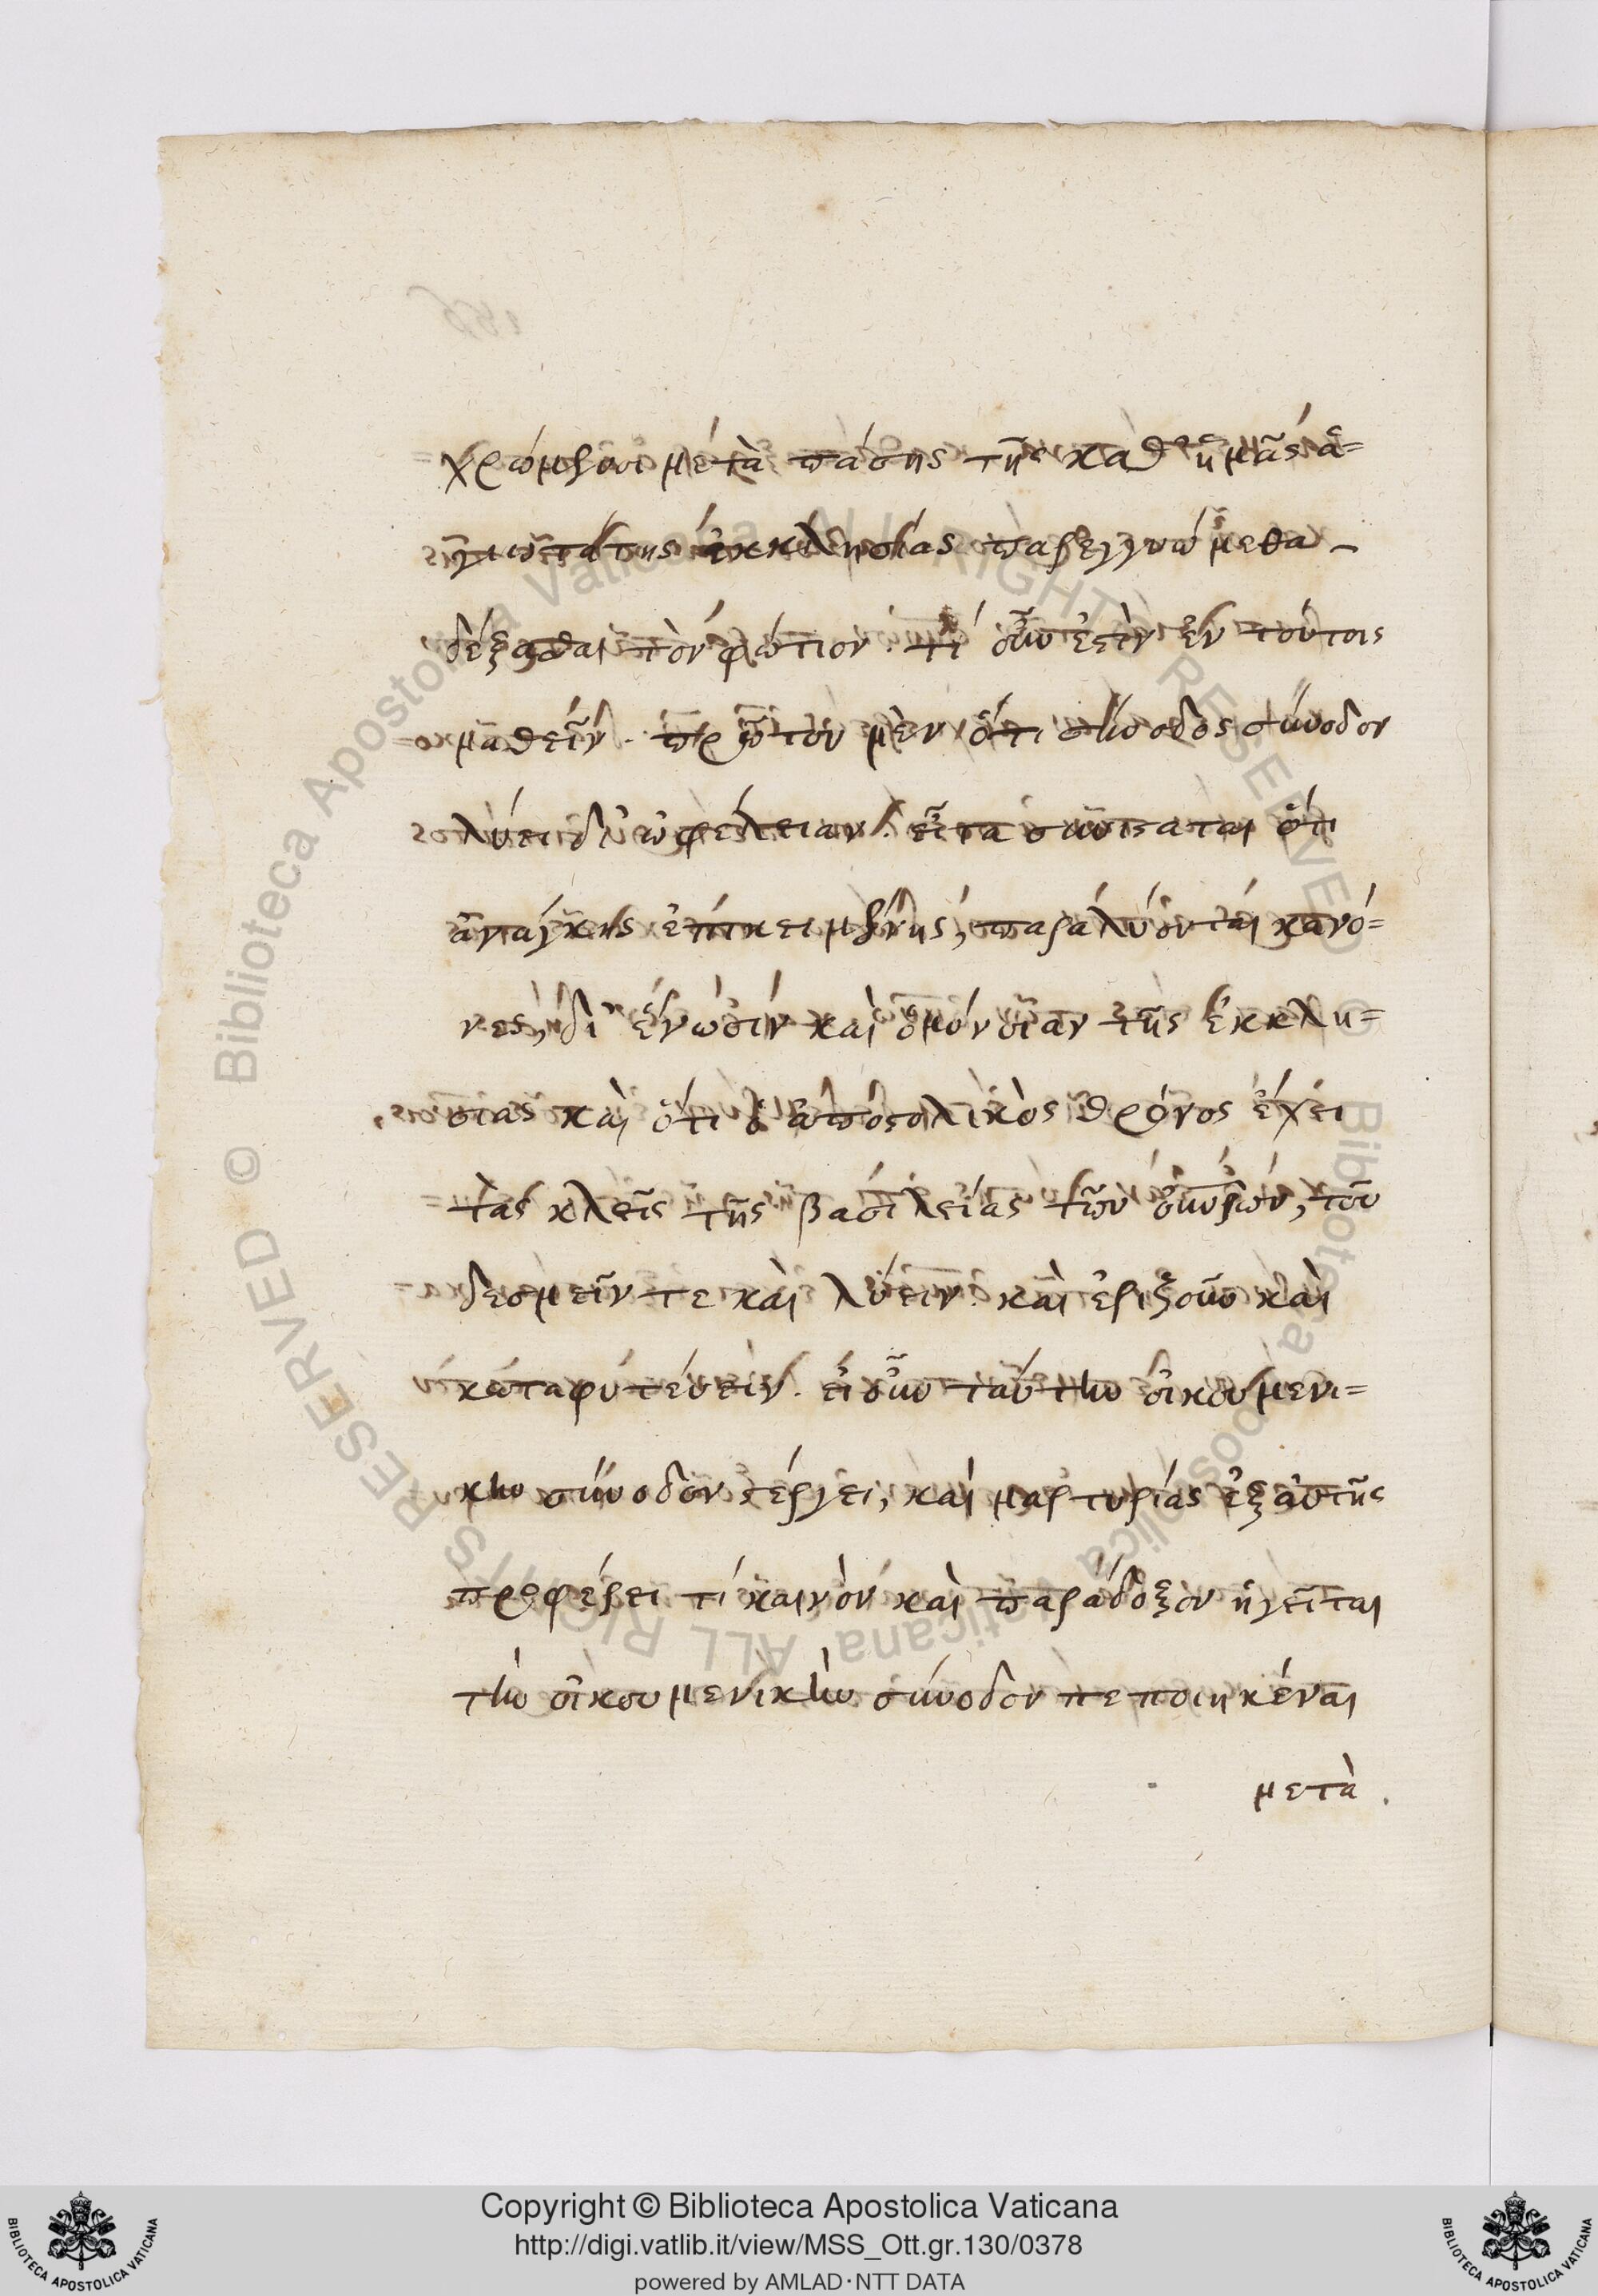 χρώμενοι μετὰ πάσης τῆς καθ' ἡμᾶς ἁ=
γιωτάτης ἐκκλησίας παρεγγυώμεθα
δέξασθαι τὸν φώτιον. τί οὖν ἐστὶν ἐν τούτοις
μαθεῖν. πρῶτον μὲν ὅτι σύνοδος σύνοδον
λύει δι' ὠφέλειαν. εἶτα συνίσταται ὅτι
ἀνάγκης ἐπικειμένης, παραλύονται κανό=
νες, δι' ἕνωσιν καὶ ὁμόνοιαν τῆς ἐκκλη=
σίας καὶ ὅτι ὁ ἀποστολικὸς θρόνος ἔχει
τὰς κλεῖς τῆς βασιλείας τῶν οὐνῶν, τοῦ
δεσμεῖν τε καὶ λύειν. καὶ ἐριζοῦν καὶ
καταφυτεύειν. εἰ οὖν ταύτην οἰκουμενι=
κὴν σύνοδον στέργει, καὶ μαρτυρίας ἐξ αὐτῆς
προφέρει τί καινὸν καὶ παράδοξον ἡγεῖται
τὴν οἰκουμενικὴν σύνοδον πεποιηκέναι
μετὰ.
© Biblioteca Apostolica Vaticana ALL RIGHTS RESERVED © Biblioteca Apostolica Vaticana ALL RIGHTS RESERVED
Copyright © Biblioteca Apostolica Vaticana
http://digi.vatlib.it/view/MSS_Ott.gr.130/0378
powered by AMLAD·NTT DATA
BIBLIOTECA APOSTOLICA VATICANA
BIBLIOTECA APOSTOLICA VATICANA